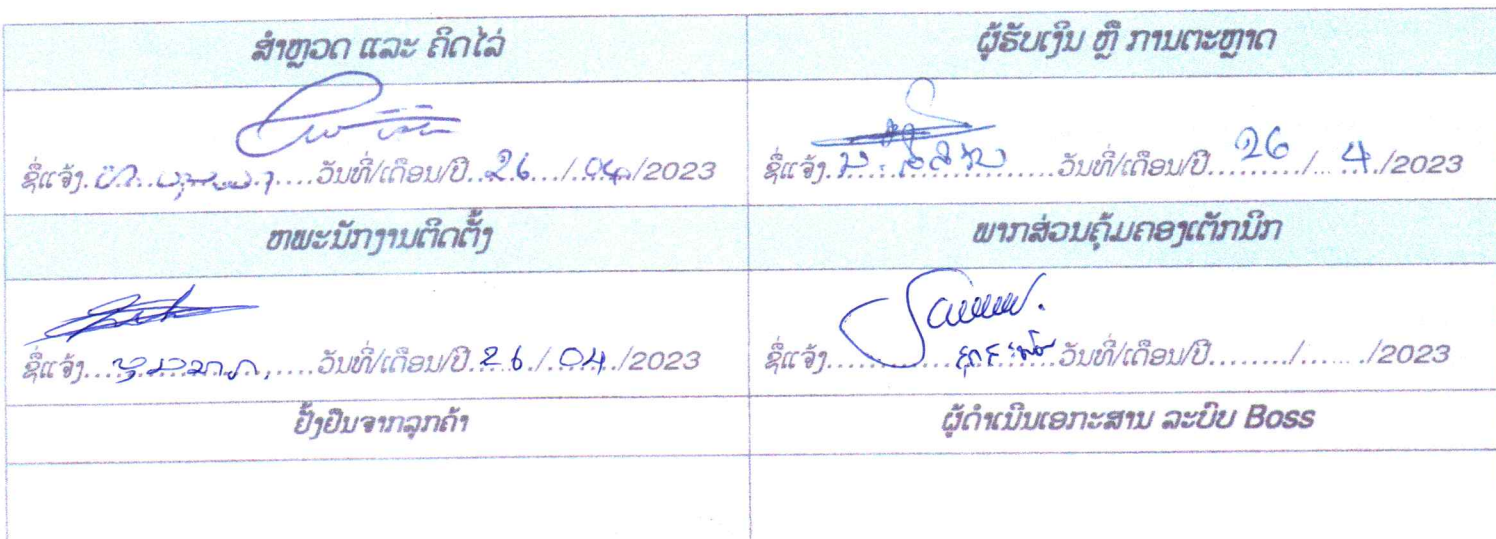 ສຳຫຼວດ ແລະ ຄິດໄລ່
ຜູ້ຮັບເງິນ ຫຼື ການຕະຫຼາດ
ຊື່ແຈ້ງ....................ວັນທີ່/ເດືອນ/ປີ..26.../..04./2023
ຊື່ແຈ້ງ....................ວັນທີ່/ເດືອນ/ປີ..26......./....4./2023
ຫພະນັກງານຕິດຕັ້ງ
ພາກສ່ວນຄຸ້ມຄອງເຕັກນິກ
ຊື່ແຈ້ງ....................ວັນທີ່/ເດືອນ/ປີ.26./.04./2023
ຊື່ແຈ້ງ....................ວັນທີ່/ເດືອນ/ປີ........./......../2023
ຢັ້ງຢືນຈາກລູກຄ້າ
ຜູ້ດຳເນີນເອກະສານ ລະບົບ Boss